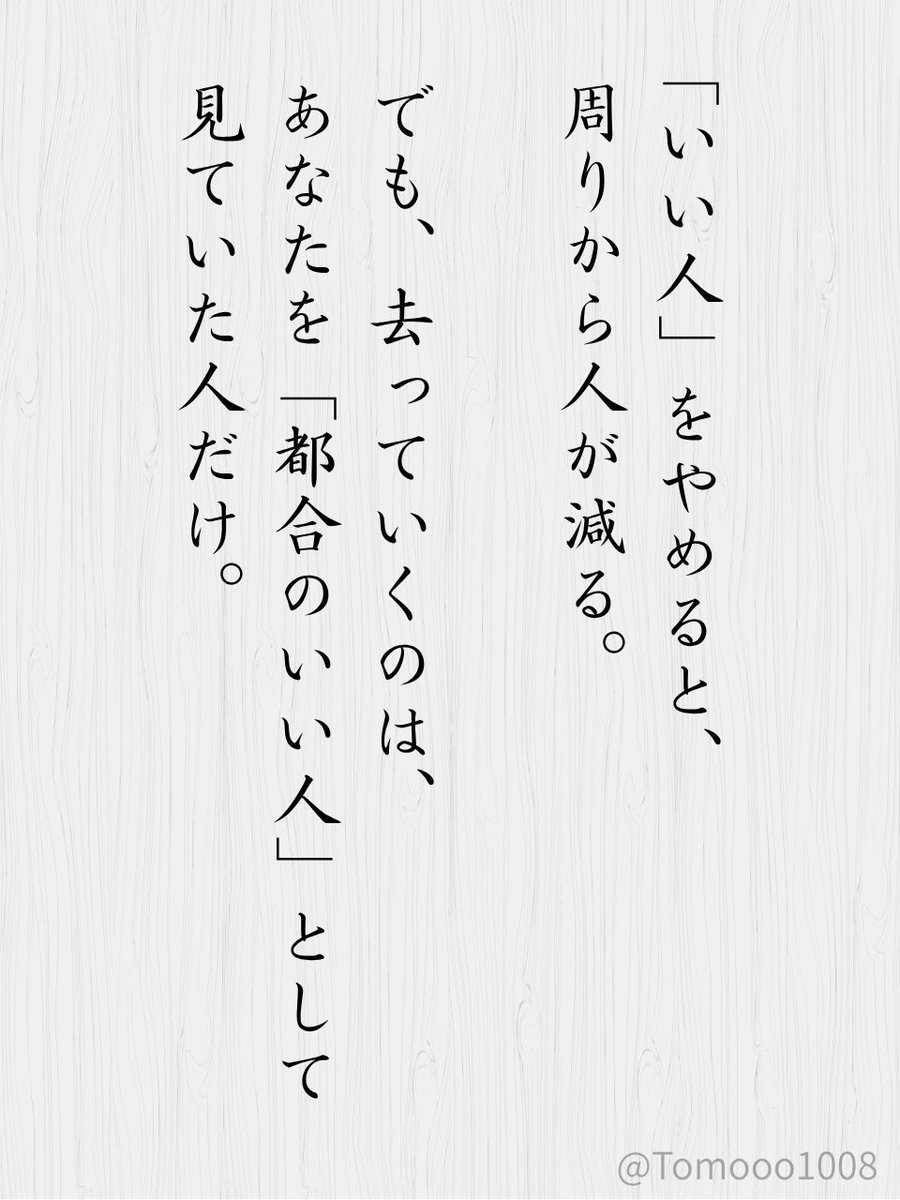 「いい人」をやめると、
周りから人が減る。
でも、去っていくのは、
あなたを「都合のいい人」として
見ていた人だけ。
@Tomooo1008